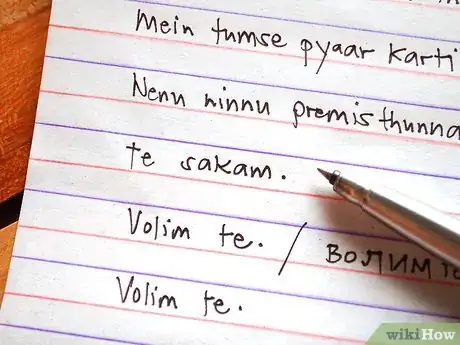 Mein tumse pyaar karti
Nenu ninnu premisthunna
Te sakam.
Volim te. / ВОЛИМ те
Volim te.
wikiHow